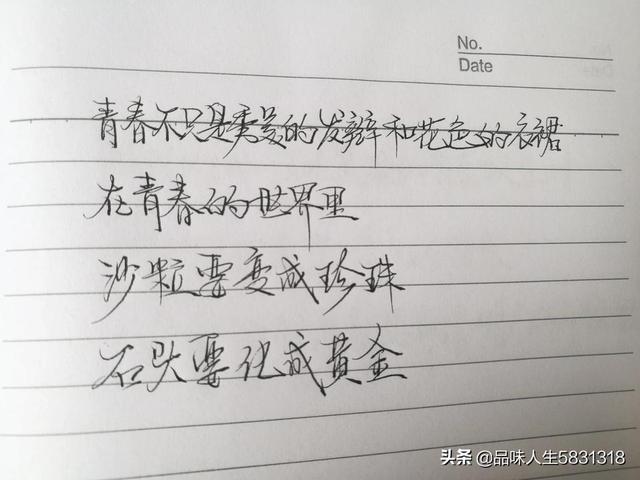 No.
Date
青春不只是秀美的发辫和花色的衣裙
在青春的世界里
沙粒要变成珍珠
石头要化成黄金
头条 @品味人生5831318